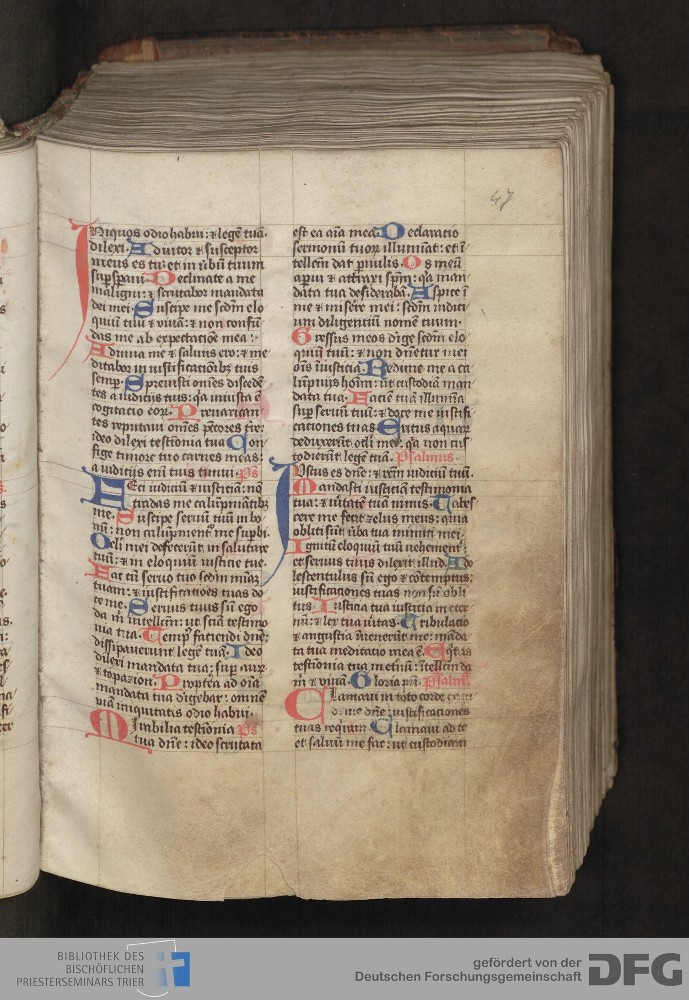 47
INiquos odio habui: ⁊ legē tuā
dilexi. Adiutor ⁊ susceptor
meus es tu: et in v̄bū tuum
suꝑspaui. Declinate a me
maligni: ⁊ scrutabor mandata
dei mei. Suscipe me scdm̄ elo
quiū tuū ⁊ viuā: ⁊ non confū
das me ab expectacōe mea:
Adiuua me ⁊ saluus ero: ⁊ me
ditabor in iustificacōibꝫ tuis
semꝑ. Spreuisti om̄es discedē
tes a iudicijs tuis: qꝛ iniusta ē
cogitacio eoꝝ. Preuarican
tes reputaui om̄es pctōres tr̄e:
ideo dilexi testīonia tua Con
fige timore tuo carnes meas:
a iudicijs em̄ tuis timui. ps̄
FEci iudiciū ⁊ iusticiā: nō
tradas me calūpniātibꝫ
me. Suscipe seruū tuū in bo
nū: non calūpnient᷑ me supbi.
Oculi mei defecerūt in salutare
tuū: ⁊ in eloquiū iusticie tue.
Fac cū seruo tuo scdm̄ miā
tuam: ⁊ iustificacōes tuas do
ce me. Seruus tuus sū ego
da m̄ intellcm̄: ut sciā testimo
nia tua. Tempꝰ faciendi dn̄e:
dissipauerunt legē tuā. Ideo
dilexi mandata tua: suꝑ auꝝ
⁊ topazion. Propterea ad oīa
mandata tua dirigebar: omnē
viā iniquitatis odio habui.
MIrabilia testīonia ps̄
tua dn̄e: ideo scrutata
est ea aīa mea. Declaratio
sermonū tuoꝝ illumīat: et ī
tellcm̄ dat ꝑuulis. Os meū
aꝑui ⁊ attraxi spm̄: qꝛ man
data tua desiderabā. Aspice ī
me ⁊ misere mei: scdm̄ iudici
um diligentiū nomē tuum.
Gressus meos dirige scdm̄ elo
quiū tuū: ⁊ non dn̄etur mei
oīs īiusticia. Redime me a ca
lūpnijs hoīm: ut custodiā man
data tua. Faciē tuā illumīa
suꝑ seruū tuū: ⁊ doce me iustifi
caciones tuas Exitus aquaꝝ
deduxerūt ocli mei: qꝛ non cus
todierūt legē tuā. Psalmus.
IUstus es dn̄e: ⁊ rcm̄ iudiciū tuū.
Mandasti iusticiā testimonia
tua: ⁊ v̄itatē tuā nimis. Tabes
cere me fecit zelus meus: quia
obliti sūt v̄ba tua inimici mei.
Ignitū eloquiū tuū vehement᷑:
et seruus tuus dilexit illud. Ado
lescentulus sū ego ⁊ cōtemptus:
iustificaciones tuas non sū obli
tus. Iusticia tua iusticia in eter
nū: ⁊ lex tua v̄itas. Tribulacio
⁊ angustia īuenerūt me: māda
ta tua meditatio mea ē. Eq̄tas
testīonia tua in et̄nū: ītellcm̄ da
m̄ ⁊ viuā. Gloria pri. Psalm̄
CLamaui in toto corde exau
di me dn̄e: iustificaciones
tuas requirā. Clamaui ad te
et saluū me fac: ut custodiam
BIBLIOTHEK DES
BISCHÖFLICHEN
PRIESTERSEMINARS TRIER
gefördert von der
Deutschen Forschungsgemeinschaft
DFG